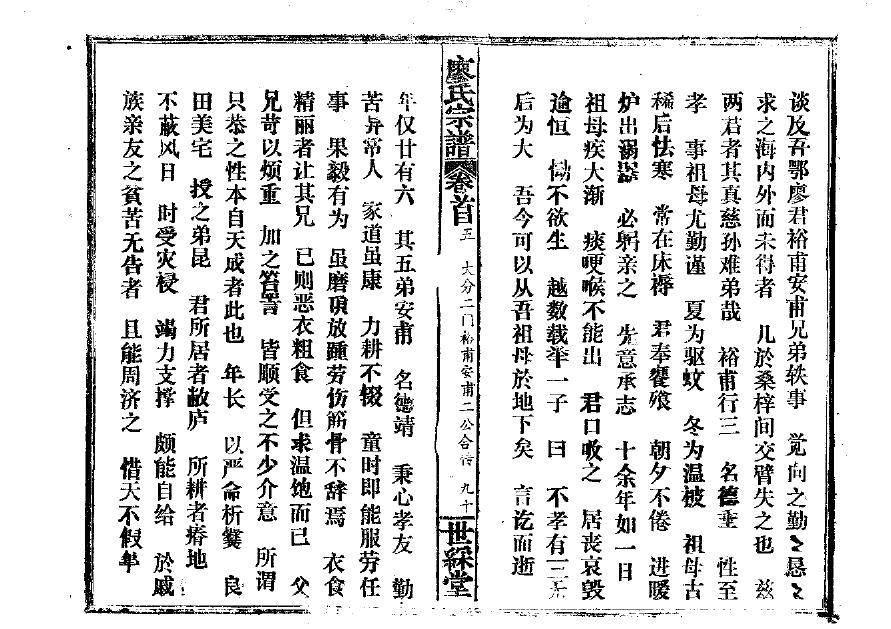 谈及吾鄂廖君裕甫安甫兄弟轶事 觉向之勤〻恳〻
求之海内外而未得者 几於桑梓间交臂失之也 兹
两君者其真慈孙难弟哉 裕甫行三 名德垂 性至
孝 事祖母尤勤谨 夏为驱蚊 冬为温被 祖母古
稀后怯寒 常在床褥 君奉饔飧 朝夕不倦 进暖
炉出溺器 必躬亲之 先意承志 十余年如一日
祖母疾大渐 痰哽喉不能出 君口吸之 居丧哀毁
逾恒 恸不欲生 越数载举一子 曰 不孝有三无
后为大 吾今可以从吾祖母於地下矣 言讫而逝
廖氏宗譜 卷首 五 大分二门裕甫安甫二公合传 九十 世綵堂
年仅廿有六 其五弟安甫 名德靖 秉心孝友 勤
苦异常人 家道虽康 力耕不辍 童时即能服劳任
事 果毅有为 虽磨顶放踵劳伤筋骨不辞焉 衣食
精丽者让其兄 已则恶衣粗食 但求温饱而已 父
兄苛以烦重 加之笞詈 皆顺受之不少介意 所谓
只恭之性本自天成者此也 年长 以严命析爨 良
田美宅 授之弟昆 君所居者敝庐 所耕者瘠地
不蔽风日 时受灾祲 竭力支撑 颇能自给 於戚
族亲友之贫苦无告者 且能周济之 惜天不假年